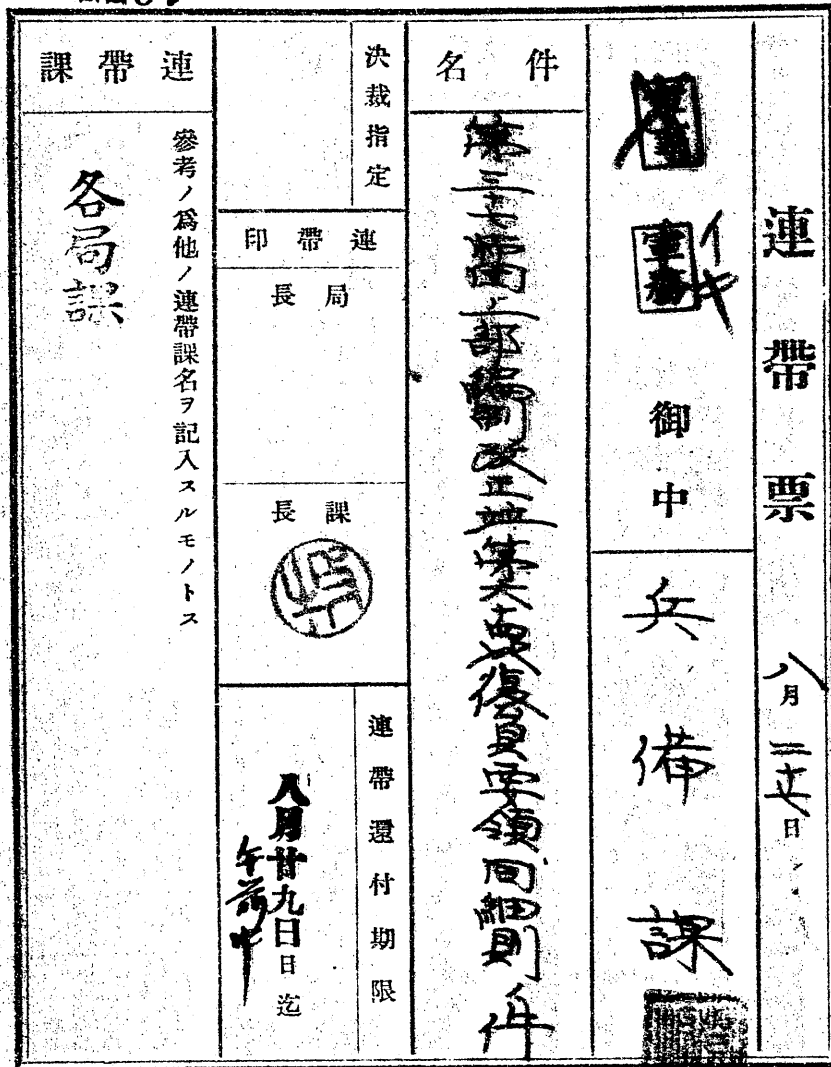 連帶票
八月二十七日
軍務
御中
兵備課
件名
第三十七師團一部編制改正並第六 復員要領同細則ノ件
決裁指定
連帶印
局長
課長
連帶還付期限
八月廿九日日迄
午前中
連帶課
參考ノ爲他ノ連帶課名ヲ記入スルモノトス
各局課